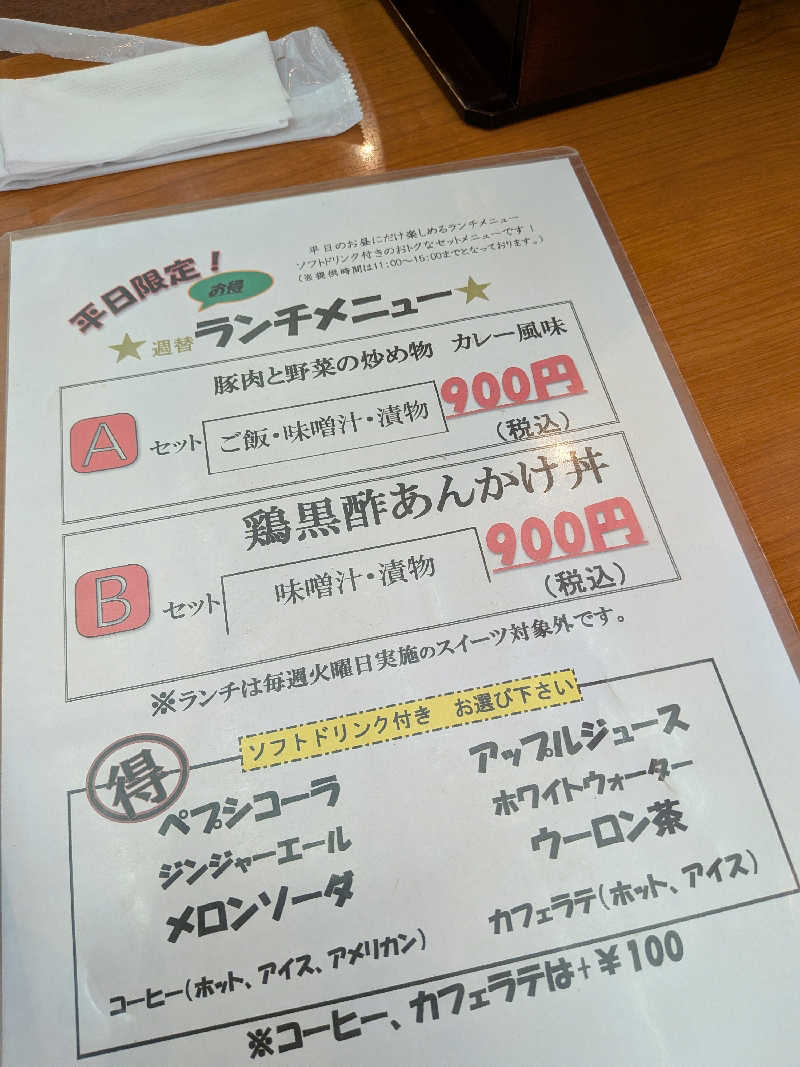 平日のお昼にだけ楽しめるランチメニュー
ソフトドリンク付きのおトクなセットメニューです！
（※提供時間は11:00～15:00までとなっております。）
平日限定！
お得
★週替ランチメニュー★
豚肉と野菜の炒め物 カレー風味
A セット ご飯・味噌汁・漬物 900円
（税込）
鶏黒酢あんかけ丼
B セット 味噌汁・漬物 900円
（税込）
※ランチは毎週火曜日実施のスイーツ対象外です。
得 ソフトドリンク付き お選び下さい
ペプシコーラ アップルジュース
ジンジャーエール ホワイトウォーター
メロンソーダ ウーロン茶
コーヒー（ホット、アイス、アメリカン） カフェラテ（ホット、アイス）
※コーヒー、カフェラテは+￥100